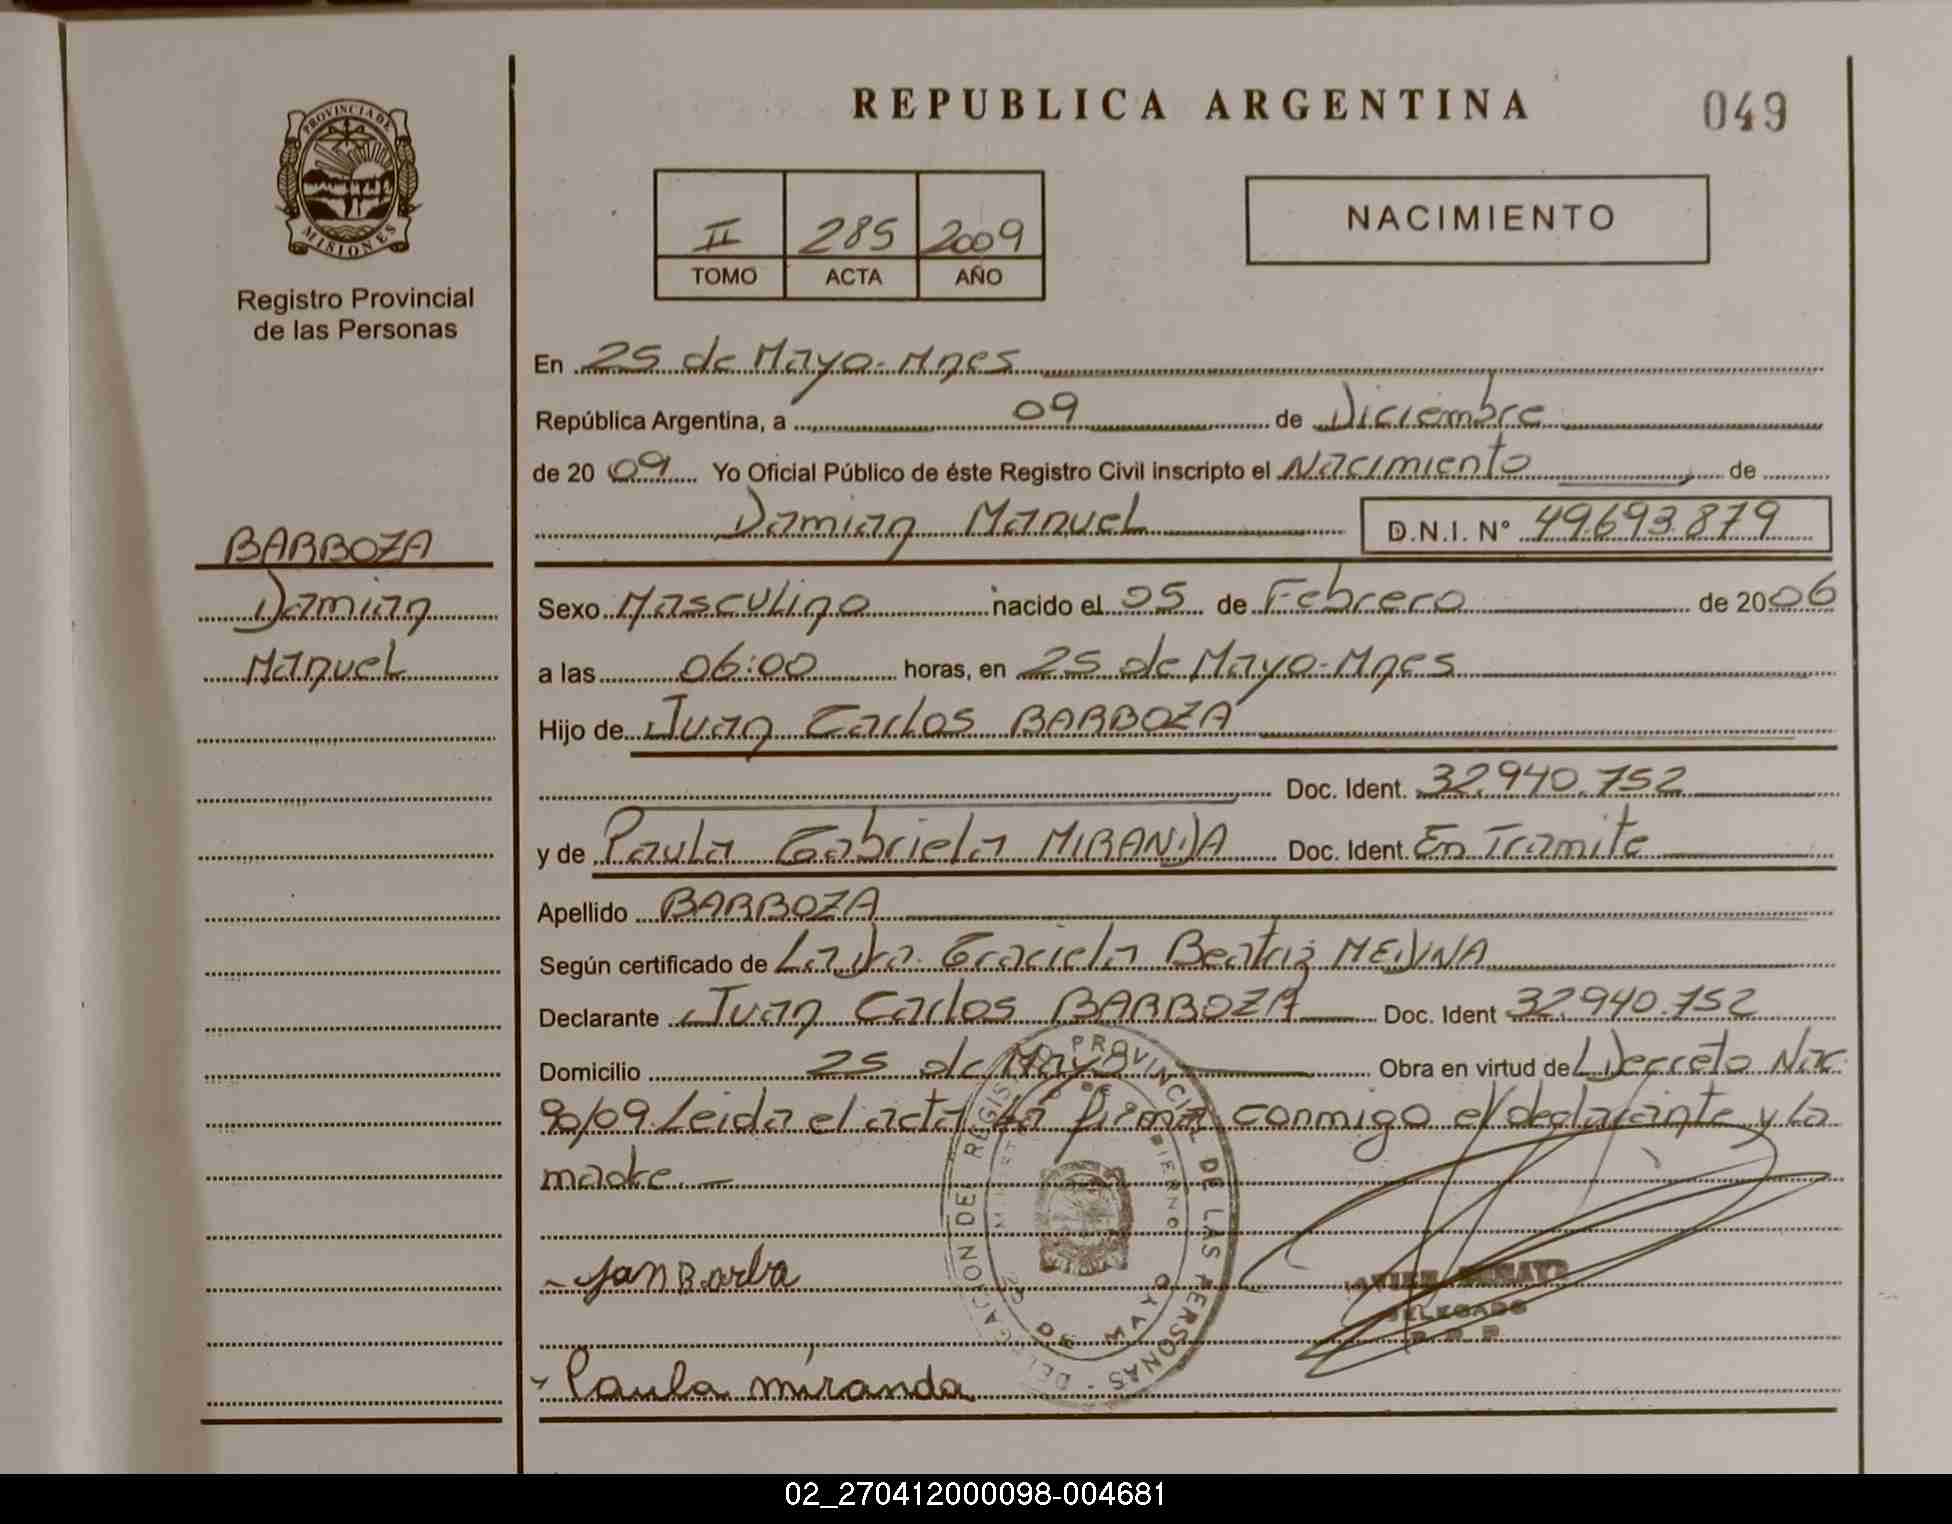 REPUBLICA ARGENTINA
049
PROVINCIA DE
MISIONES
Registro Provincial
de las Personas
II 285 2009
TOMO ACTA AÑO
NACIMIENTO
En 25 de Mayo-Mnes
República Argentina, a 09 de Diciembre
de 2009 Yo Oficial Público de éste Registro Civil inscripto el Nacimiento de
Damian Manuel D.N.I. N° 49.693.879
BARBOZA
Damian
Manuel
Sexo Masculino nacido el 05 de Febrero de 2006
a las 06:00 horas, en 25 de Mayo-Mnes
Hijo de Juan Carlos BARBOZA
Doc. Ident. 32.940.752
y de Paula Gabriela MIRANDA Doc. Ident. En Tramite
Apellido BARBOZA
Según certificado de La Dra. Graciela Beatriz MEDINA
Declarante Juan Carlos BARBOZA Doc. Ident 32.940.752
Domicilio 25 de Mayo Obra en virtud de Decreto Nac
90/09. Leida el acta la firma conmigo el declarante y La
madre.-
DELEGACION DEL REGISTRO PROVINCIAL DE LAS PERSONAS
25 DE MAYO
DELEGADO
Paula miranda